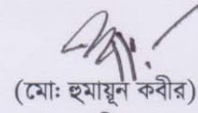 (মোঃ হুমায়ূন কবীর)